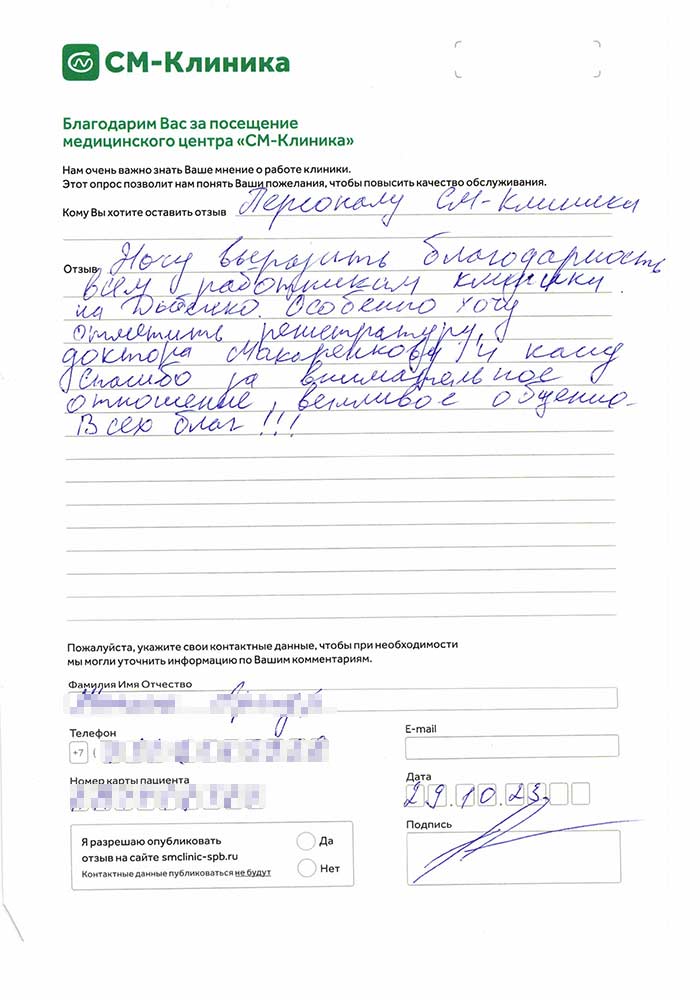 СМ-Клиника
Благодарим Вас за посещение
медицинского центра «СМ-Клиника»
Нам очень важно знать Ваше мнение о работе клиники.
Этот опрос позволит нам понять Ваши пожелания, чтобы повысить качество обслуживания.
Кому Вы хотите оставить отзыв Персоналу СМ-клиника
Отзыв Хочу выразить благодарность
всем работникам клиники
на Дыбенко. Особенно хочу
отметить регистратуру,
доктора Макаренкову
Спасибо за внимательное
отношение, вежливое общение.
Всех благ!!!
Пожалуйста, укажите свои контактные данные, чтобы при необходимости
мы могли уточнить информацию по Вашим комментариям.
Фамилия Имя Отчество
Телефон
E-mail
+7 (
Номер карты пациента
Дата
29.10.23
Подпись
Я разрешаю опубликовать
отзыв на сайте smclinic-spb.ru
Контактные данные публиковаться не будут
Да
Нет